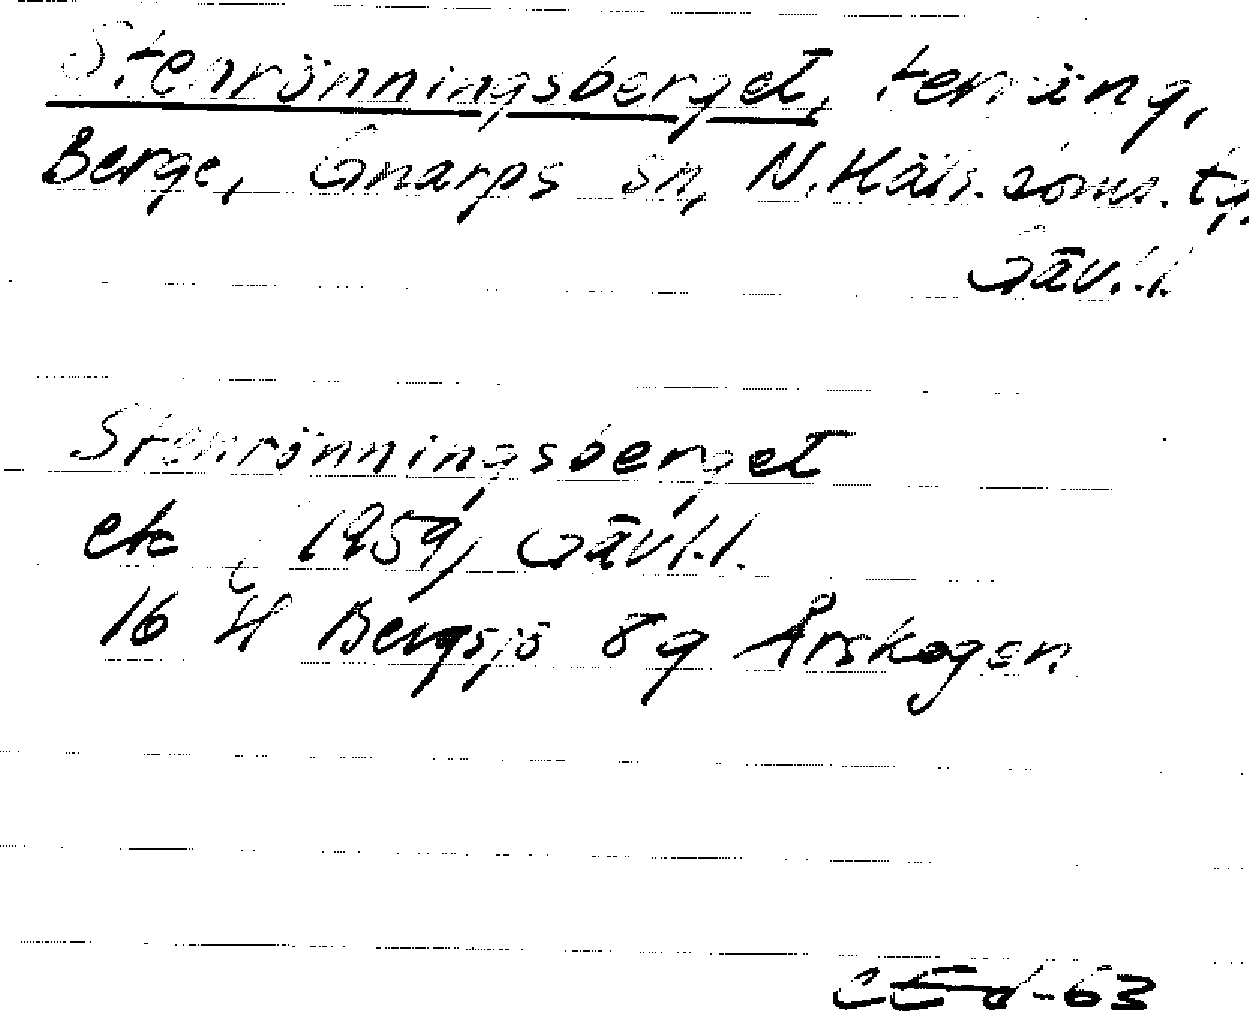 Stenrönningsberget, terräng,
Berge, Gnarps sn, N. Häls. doms. tg.
Gävl.l.
Stenrönningsberget
ek , 1959, Gävl.l.
16 H Bergsjö 8 g Årskogen
CEd-63